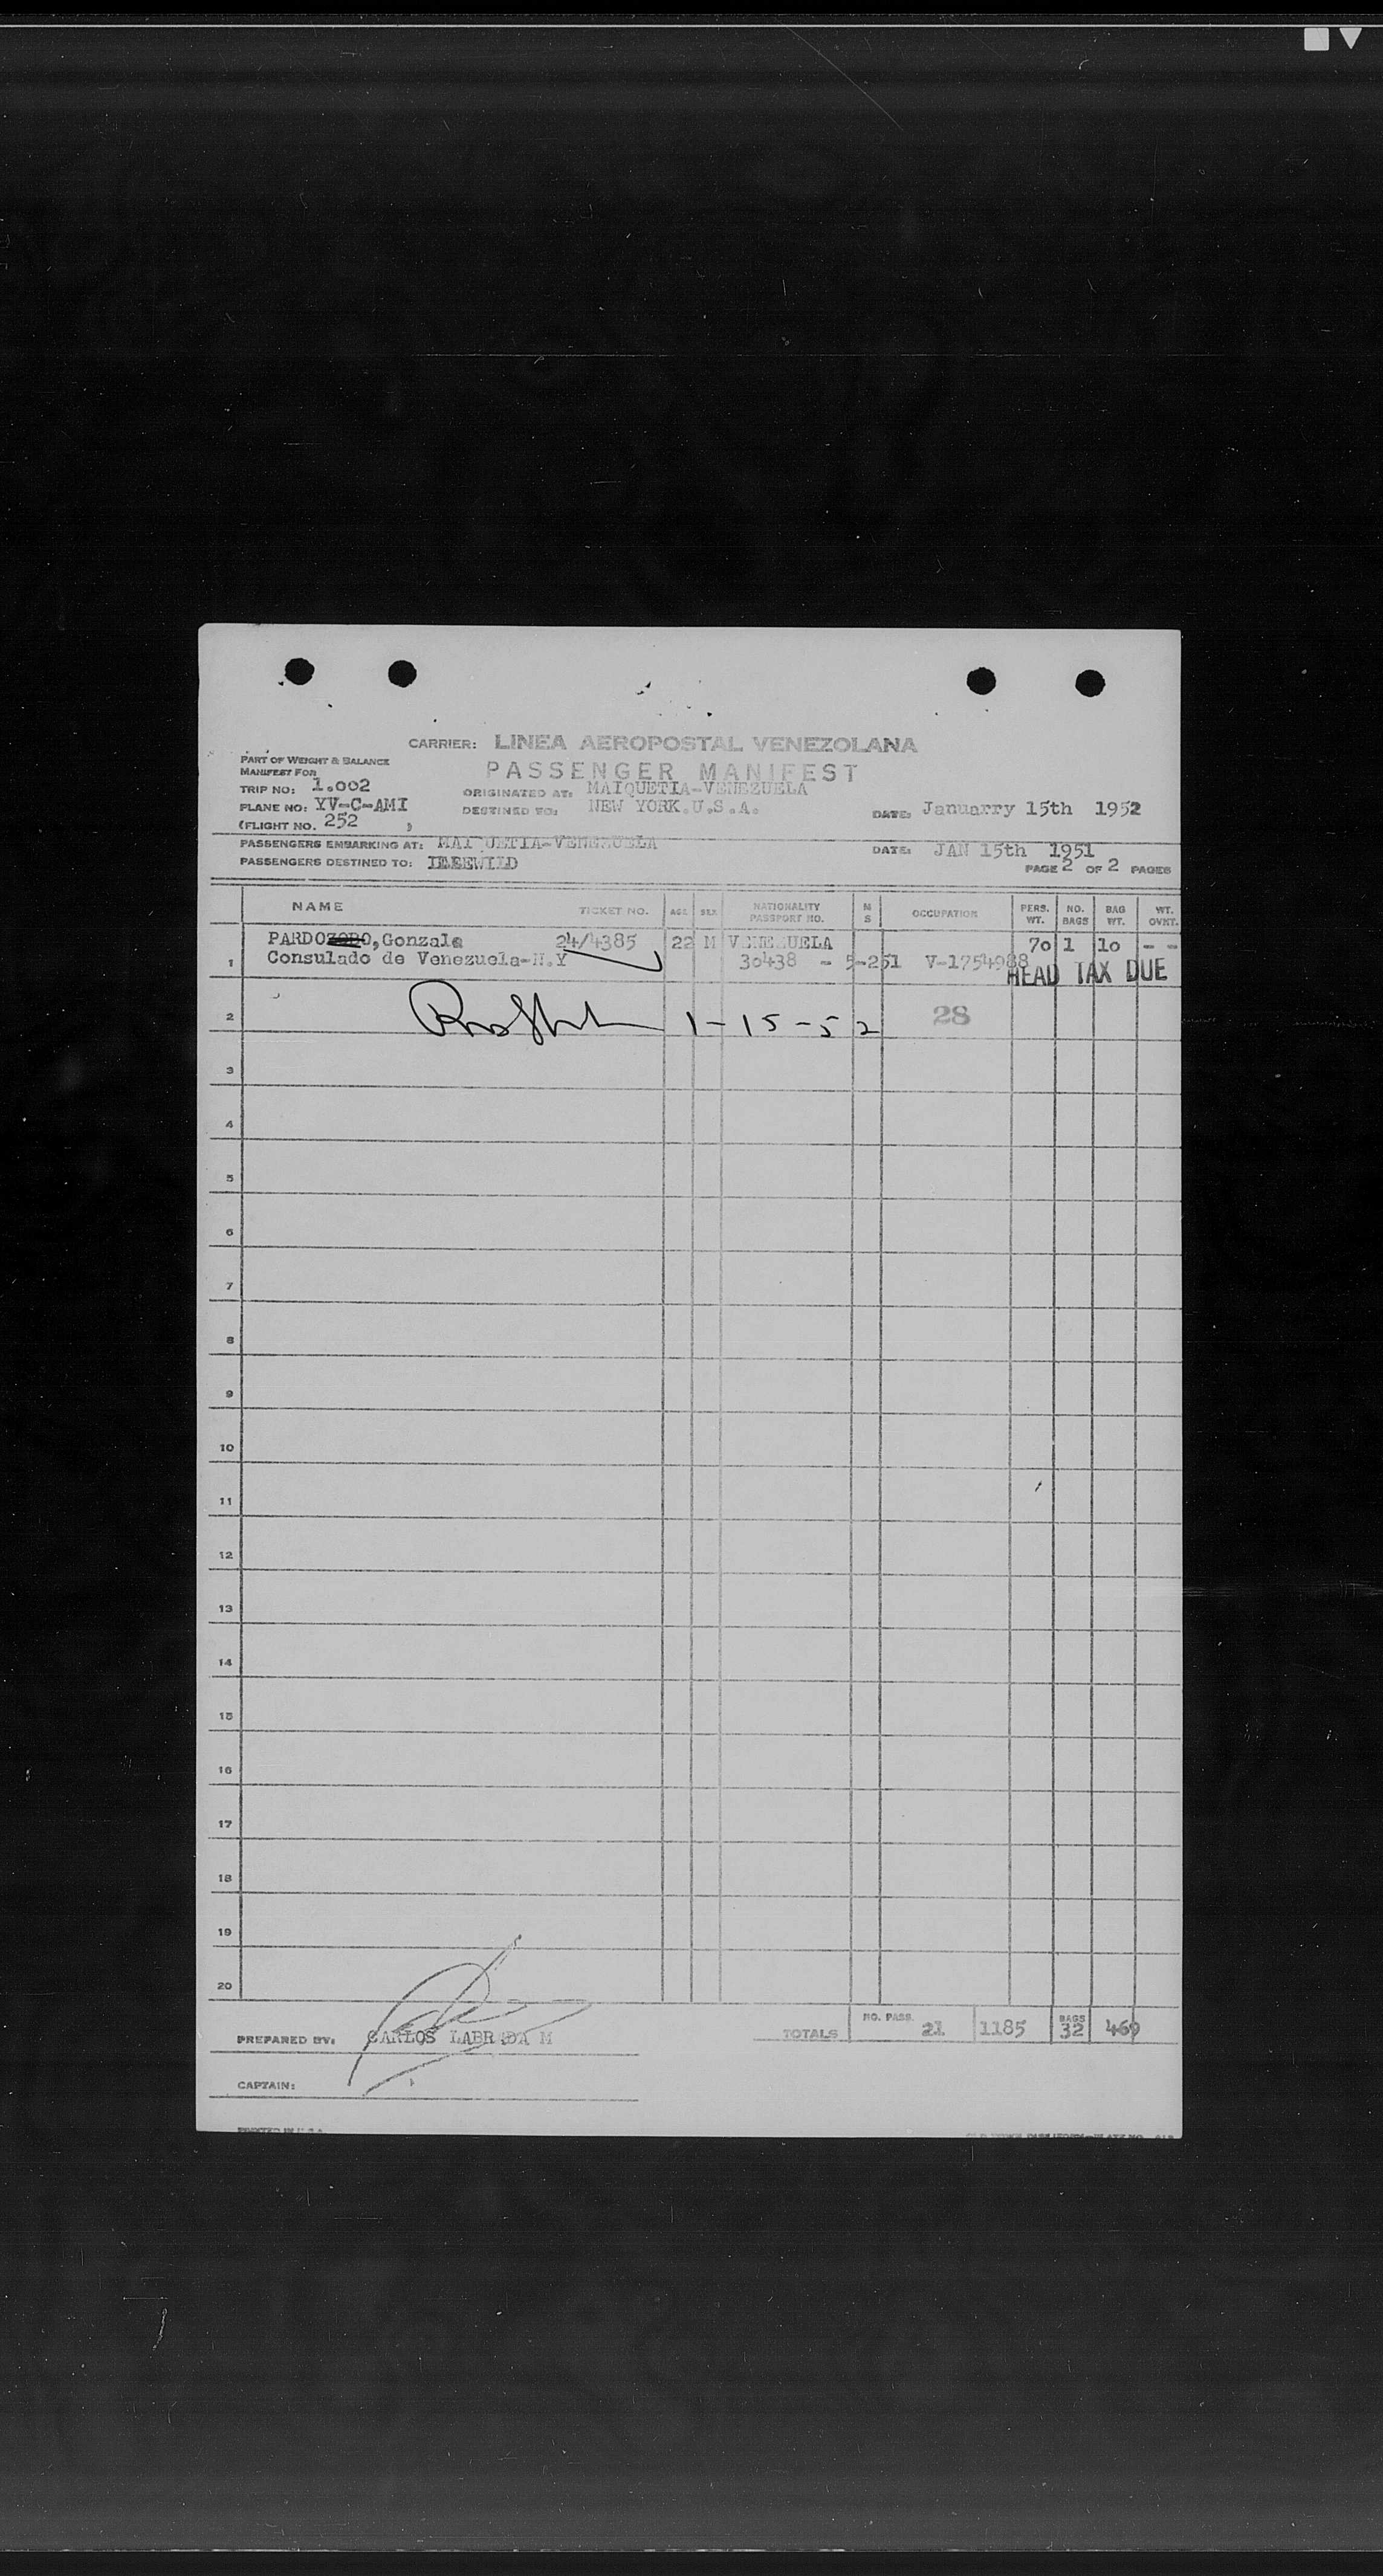 CARRIER: LINEA AEROPOSTAL VENEZOLANA
PART OF WEIGHT & BALANCE
MANIFEST FOR
PASSENGER MANIFEST
TRIP NO: 1.002
ORIGINATED AT: MAIQUETIA-VENEZUELA
PLANE NO: YV-C-AMI
DESTINED TO: NEW YORK.U.S.A.
DATE: Januarry 15th 1952
(FLIGHT NO. 252 )
PASSENGERS EMBARKING AT: MAIQUETIA-VENEZUELA
DATE: JAN 15th 1951
PASSENGERS DESTINED TO:
PAGE 2 OF 2 PAGES
NAME TICKET NO. AGE SEX NATIONALITY PASSPORT NO. M S OCCUPATION PERS. WT. NO. BAGS BAG WT. WT. OVNT.
PARDO, Gonzalo 24/4385 22 M VENEZUELA 70 1 10 - -
1 Consulado de Venezuela-N.Y 30438 - 5-251 V-1754988
HEAD TAX DUE
2 1-15-52 28
3
4
5
6
7
8
9
10
11
12
13
14
15
16
17
18
19
20
PREPARED BY: CARLOS LABRADA M
TOTALS NO. PASS. 21 1185 BAGS 32 469
CAPTAIN:
PRINTED IN U.S.A.